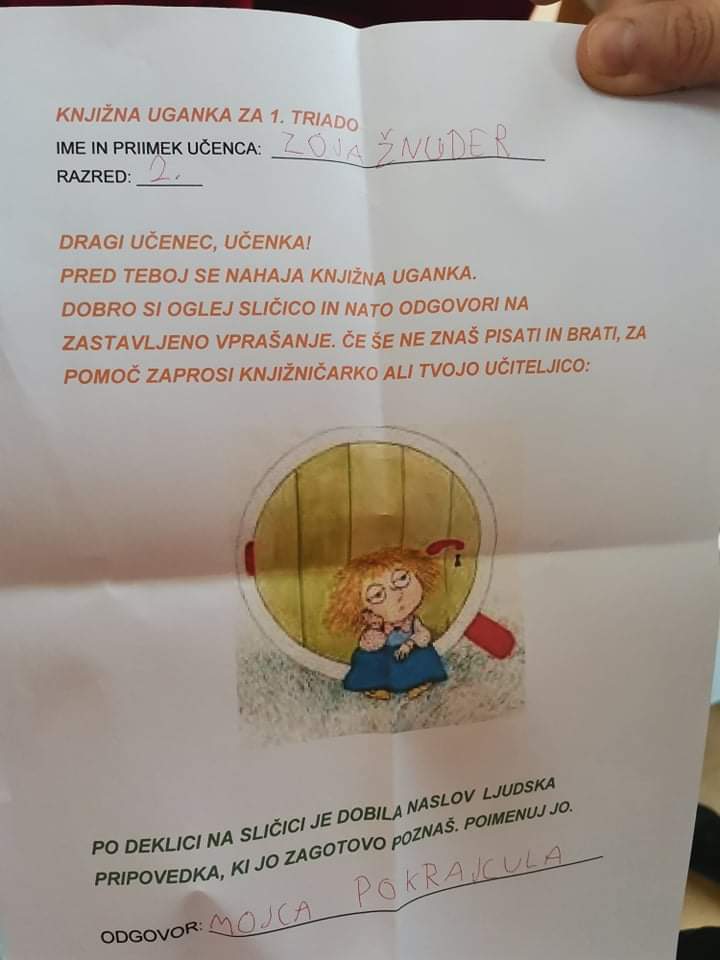 KNJIŽNA UGANKA ZA 1. TRIADO
IME IN PRIIMEK UČENCA: ZOJA ŽNUDER
RAZRED: 2.
DRAGI UČENEC, UČENKA!
PRED TEBOJ SE NAHAJA KNJIŽNA UGANKA.
DOBRO SI OGLEJ SLIČICO IN NATO ODGOVORI NA
ZASTAVLJENO VPRAŠANJE. ČE ŠE NE ZNAŠ PISATI IN BRATI, ZA
POMOČ ZAPROSI KNJIŽNIČARKO ALI TVOJO UČITELJICO:
PO DEKLICI NA SLIČICI JE DOBILA NASLOV LJUDSKA
PRIPOVEDKA, KI JO ZAGOTOVO POZNAŠ. POIMENUJ JO.
ODGOVOR: MOJCA POKRAJCULA